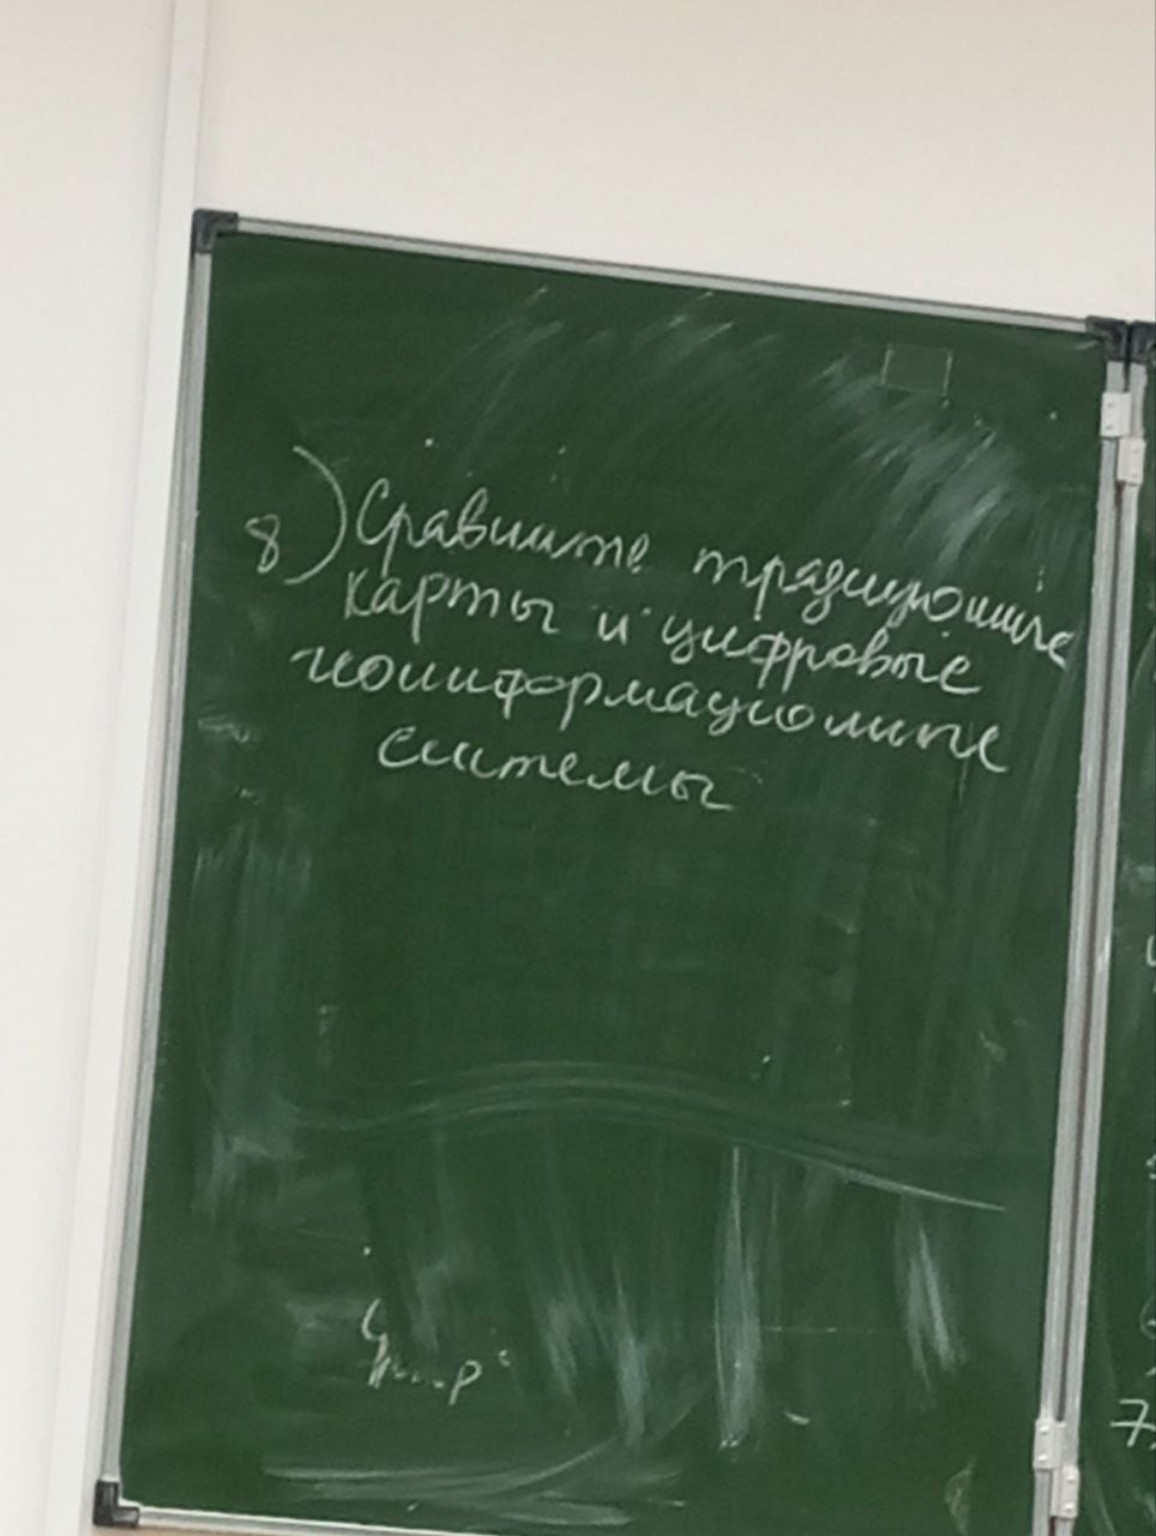 8) Сравните традиционные
карты и цифровые
геоинформационные
системы
7